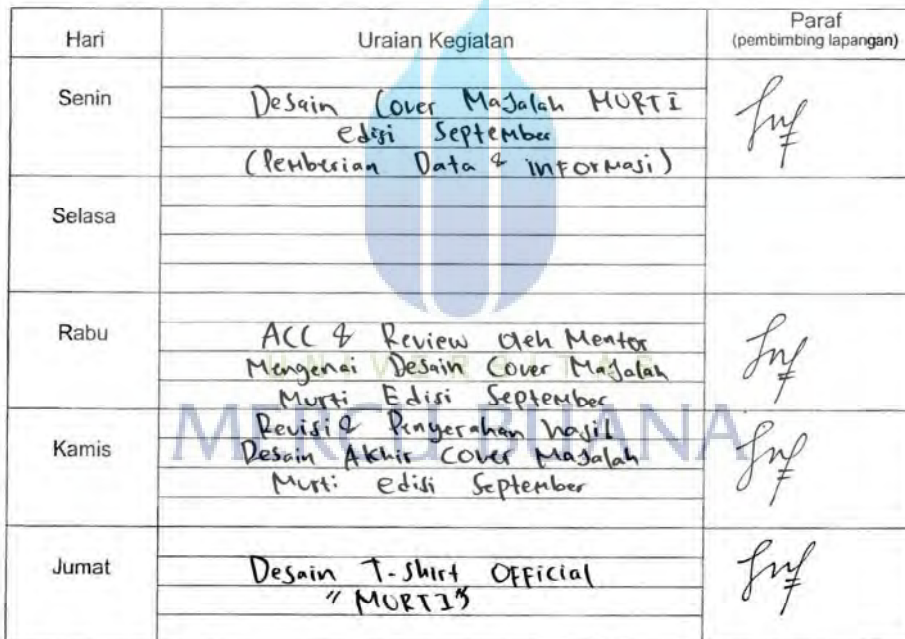 Hari Uraian Kegiatan Paraf
(pembimbing lapangan)
Senin Desain Cover Majalah MURTI
edisi September
(Pemberian Data & informasi)
Selasa
Rabu ACC & Review oleh Mentor
Mengenai Desain Cover Majalah
Murti Edisi September
Kamis Revisi & Penyerahan hasil
Desain Akhir Cover Majalah
Murti edisi September
Jumat Desain T-Shirt Official
"MURTI"
UNIVERSITAS
MERCU BUANA